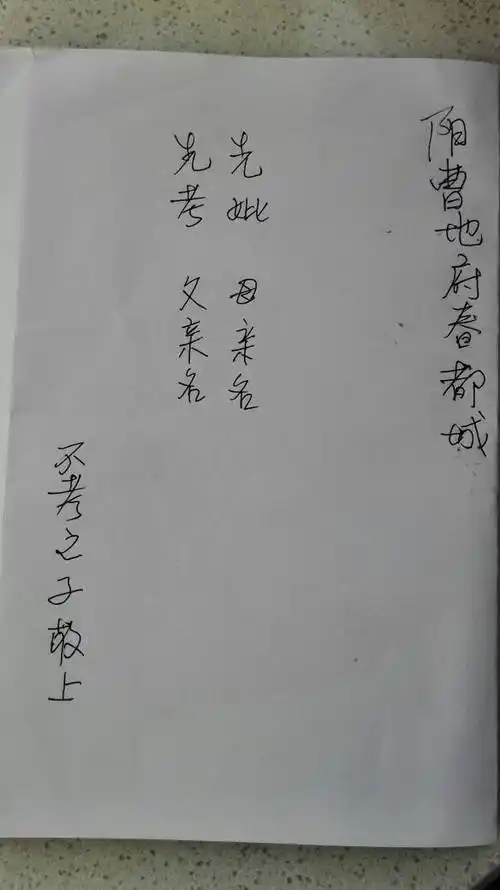 阳曹地府春都城
先妣 母亲名
先考 父亲名
不孝之子敬上